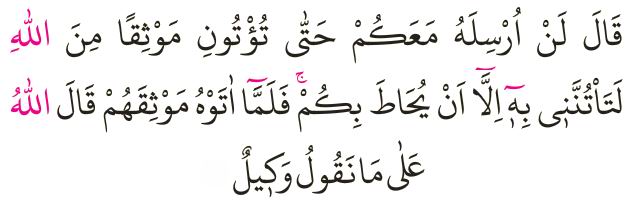 قَالَ لَنْ اُرْسِلَهُ مَعَكُمْ حَتّٰى تُؤْتُونِ مَوْثِقًا مِنَ اللّٰهِ
لَتَأْتُنَّنٖي بِهٖٓ اِلَّٓا اَنْ يُحَاطَ بِكُمْۚ فَلَمَّٓا اٰتَوْهُ مَوْثِقَهُمْ قَالَ اللّٰهُ
عَلٰى مَا نَقُولُ وَكٖيلٌ